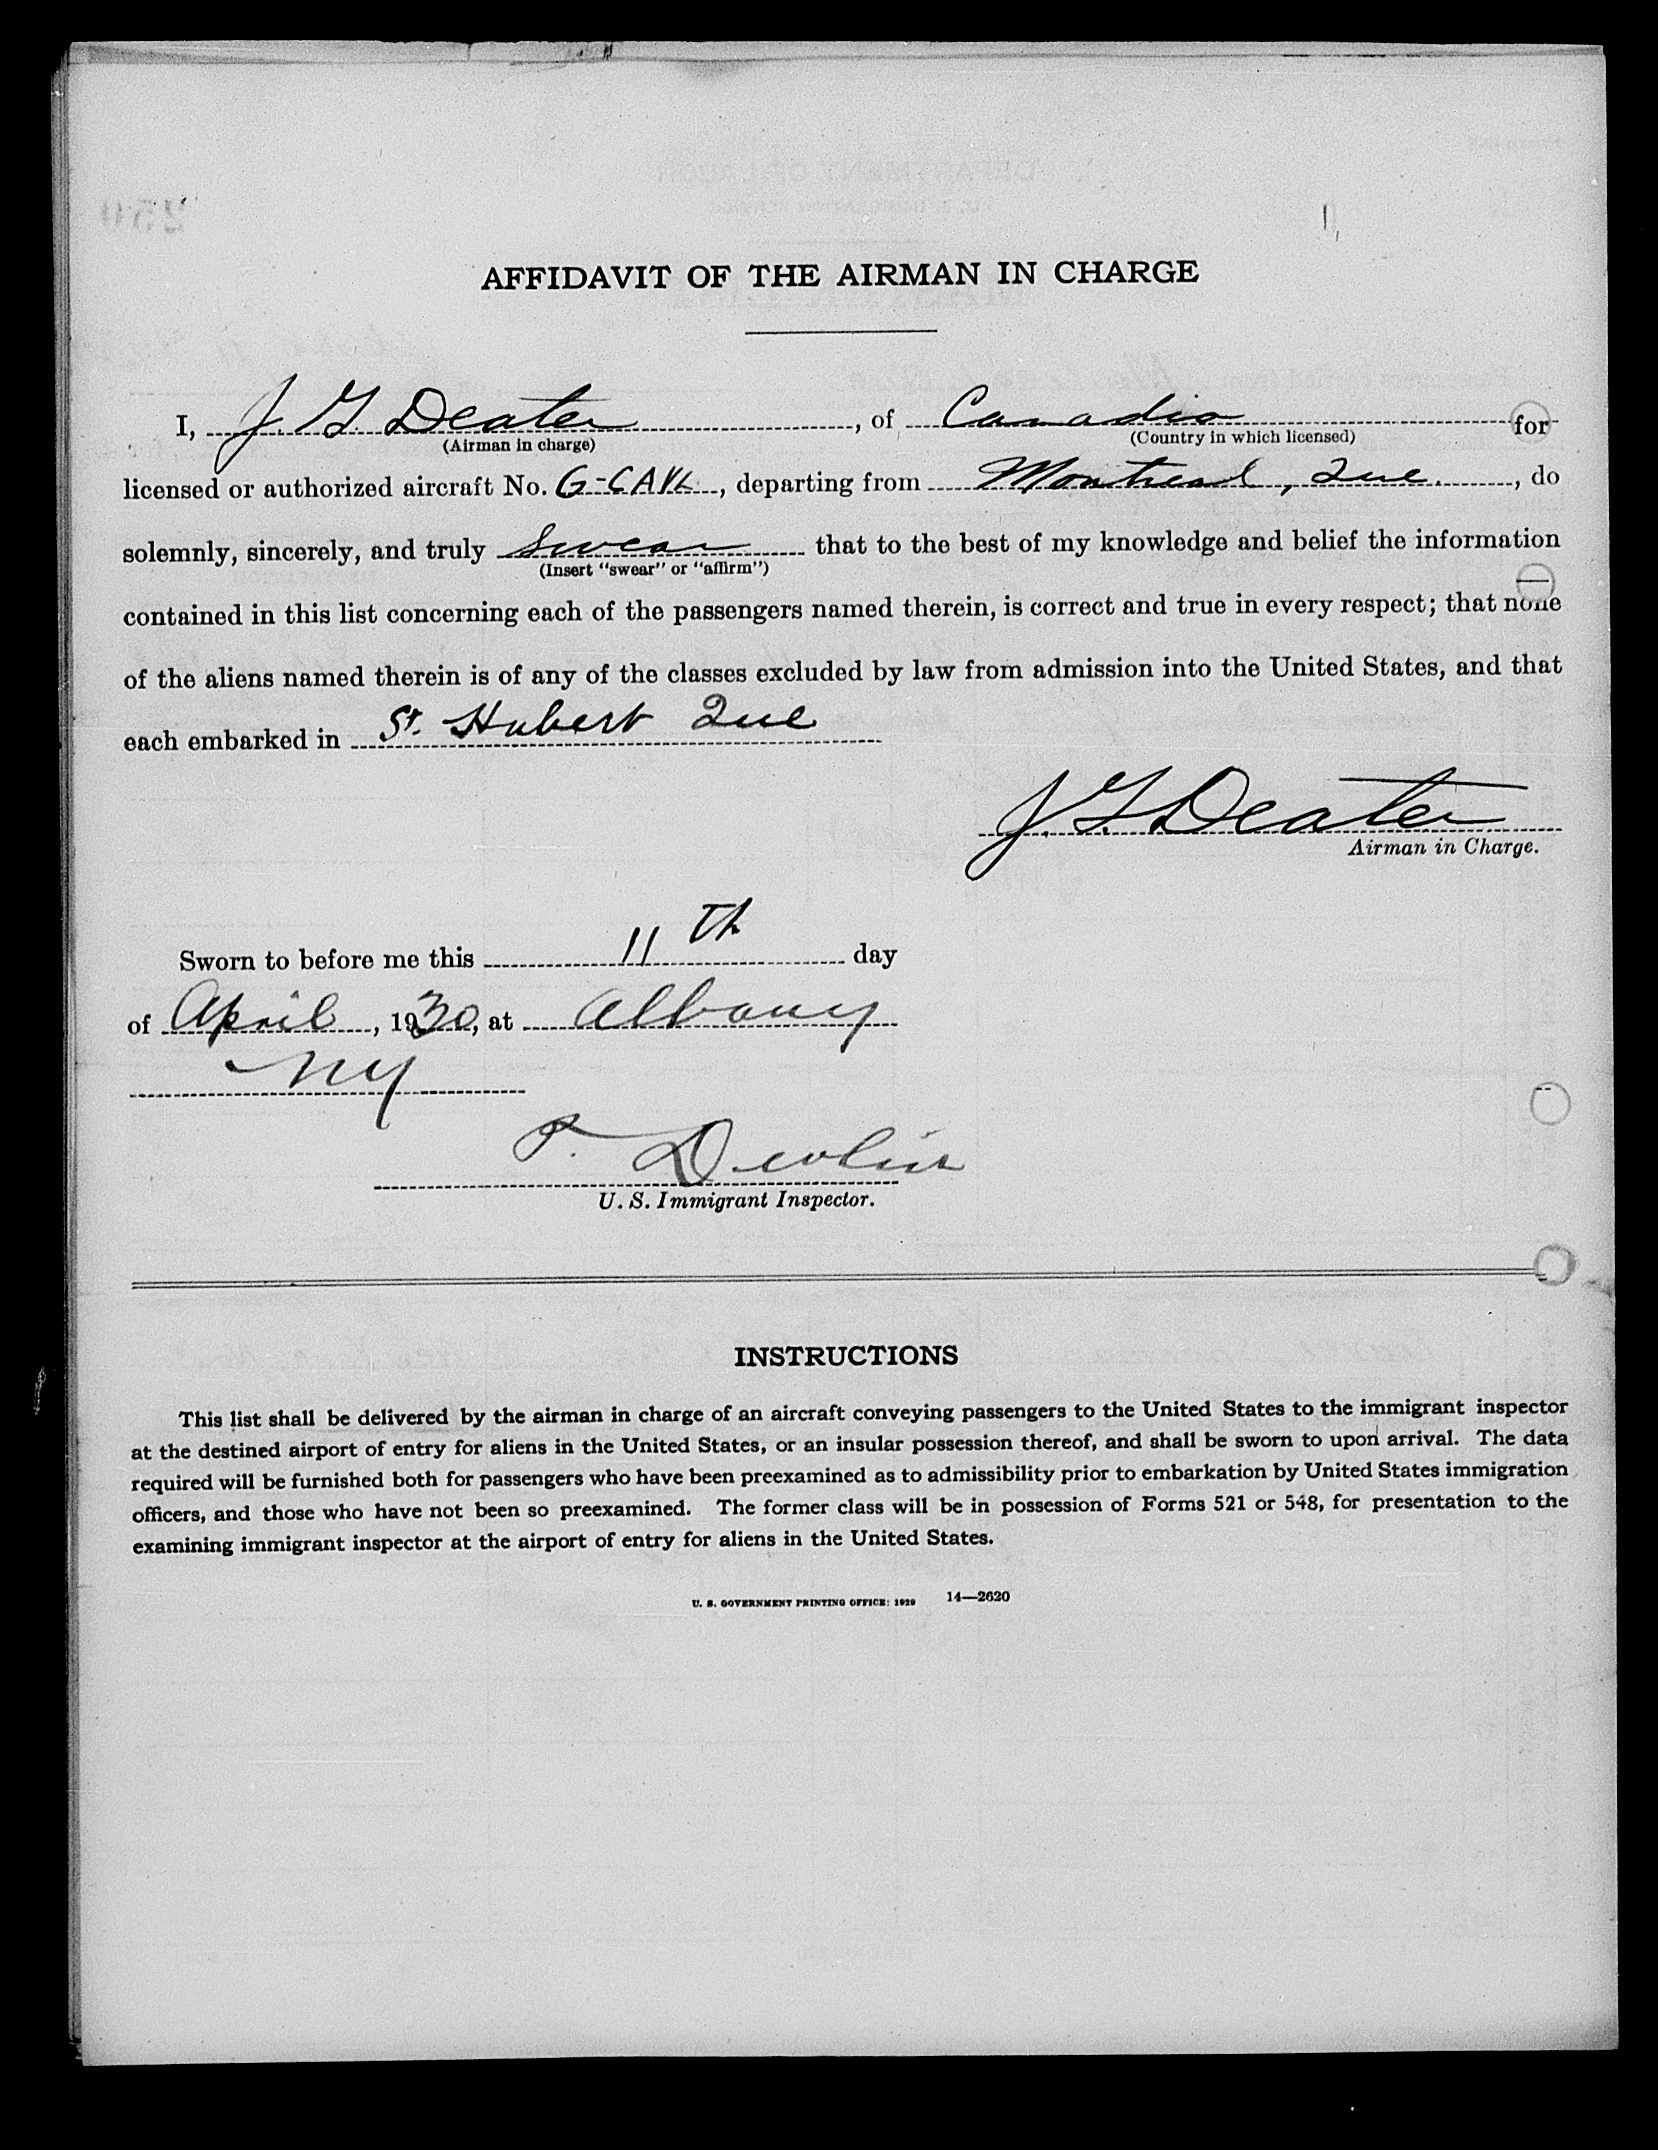 AFFIDAVIT OF THE AIRMAN IN CHARGE
I, J. G. Deater, of Canadia for
(Airman in charge) (Country in which licensed)
licensed or authorized aircraft No. G-CAVL, departing from Montreal, Que., do
solemnly, sincerely, and truly Swear that to the best of my knowledge and belief the information
(Insert "swear" or "affirm")
contained in this list concerning each of the passengers named therein, is correct and true in every respect; that none
of the aliens named therein is of any of the classes excluded by law from admission into the United States, and that
each embarked in St. Hubert Que
J. G. Deater
Airman in Charge.
Sworn to before me this 11th day
of April, 1930, at Albany
NY
P. Devlin
U. S. Immigrant Inspector.
INSTRUCTIONS
This list shall be delivered by the airman in charge of an aircraft conveying passengers to the United States to the immigrant inspector
at the destined airport of entry for aliens in the United States, or an insular possession thereof, and shall be sworn to upon arrival. The data
required will be furnished both for passengers who have been preexamined as to admissibility prior to embarkation by United States immigration
officers, and those who have not been so preexamined. The former class will be in possession of Forms 521 or 548, for presentation to the
examining immigrant inspector at the airport of entry for aliens in the United States.
U. S. GOVERNMENT PRINTING OFFICE: 1929 14—2620